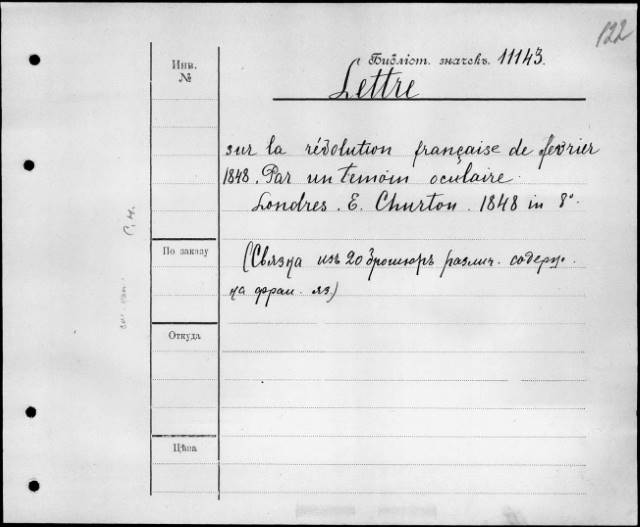 122
Инв.
№
Библіот. значекъ. 11143.
Lettre
sur la révolution française de fevrier
1848. Par un temoin oculaire.
Londres. E. Churton. 1848 in 8°.
По заказу
(Связка изъ 20 брошюръ различ. содерж.
на фран. яз)
Откуда
Цѣна